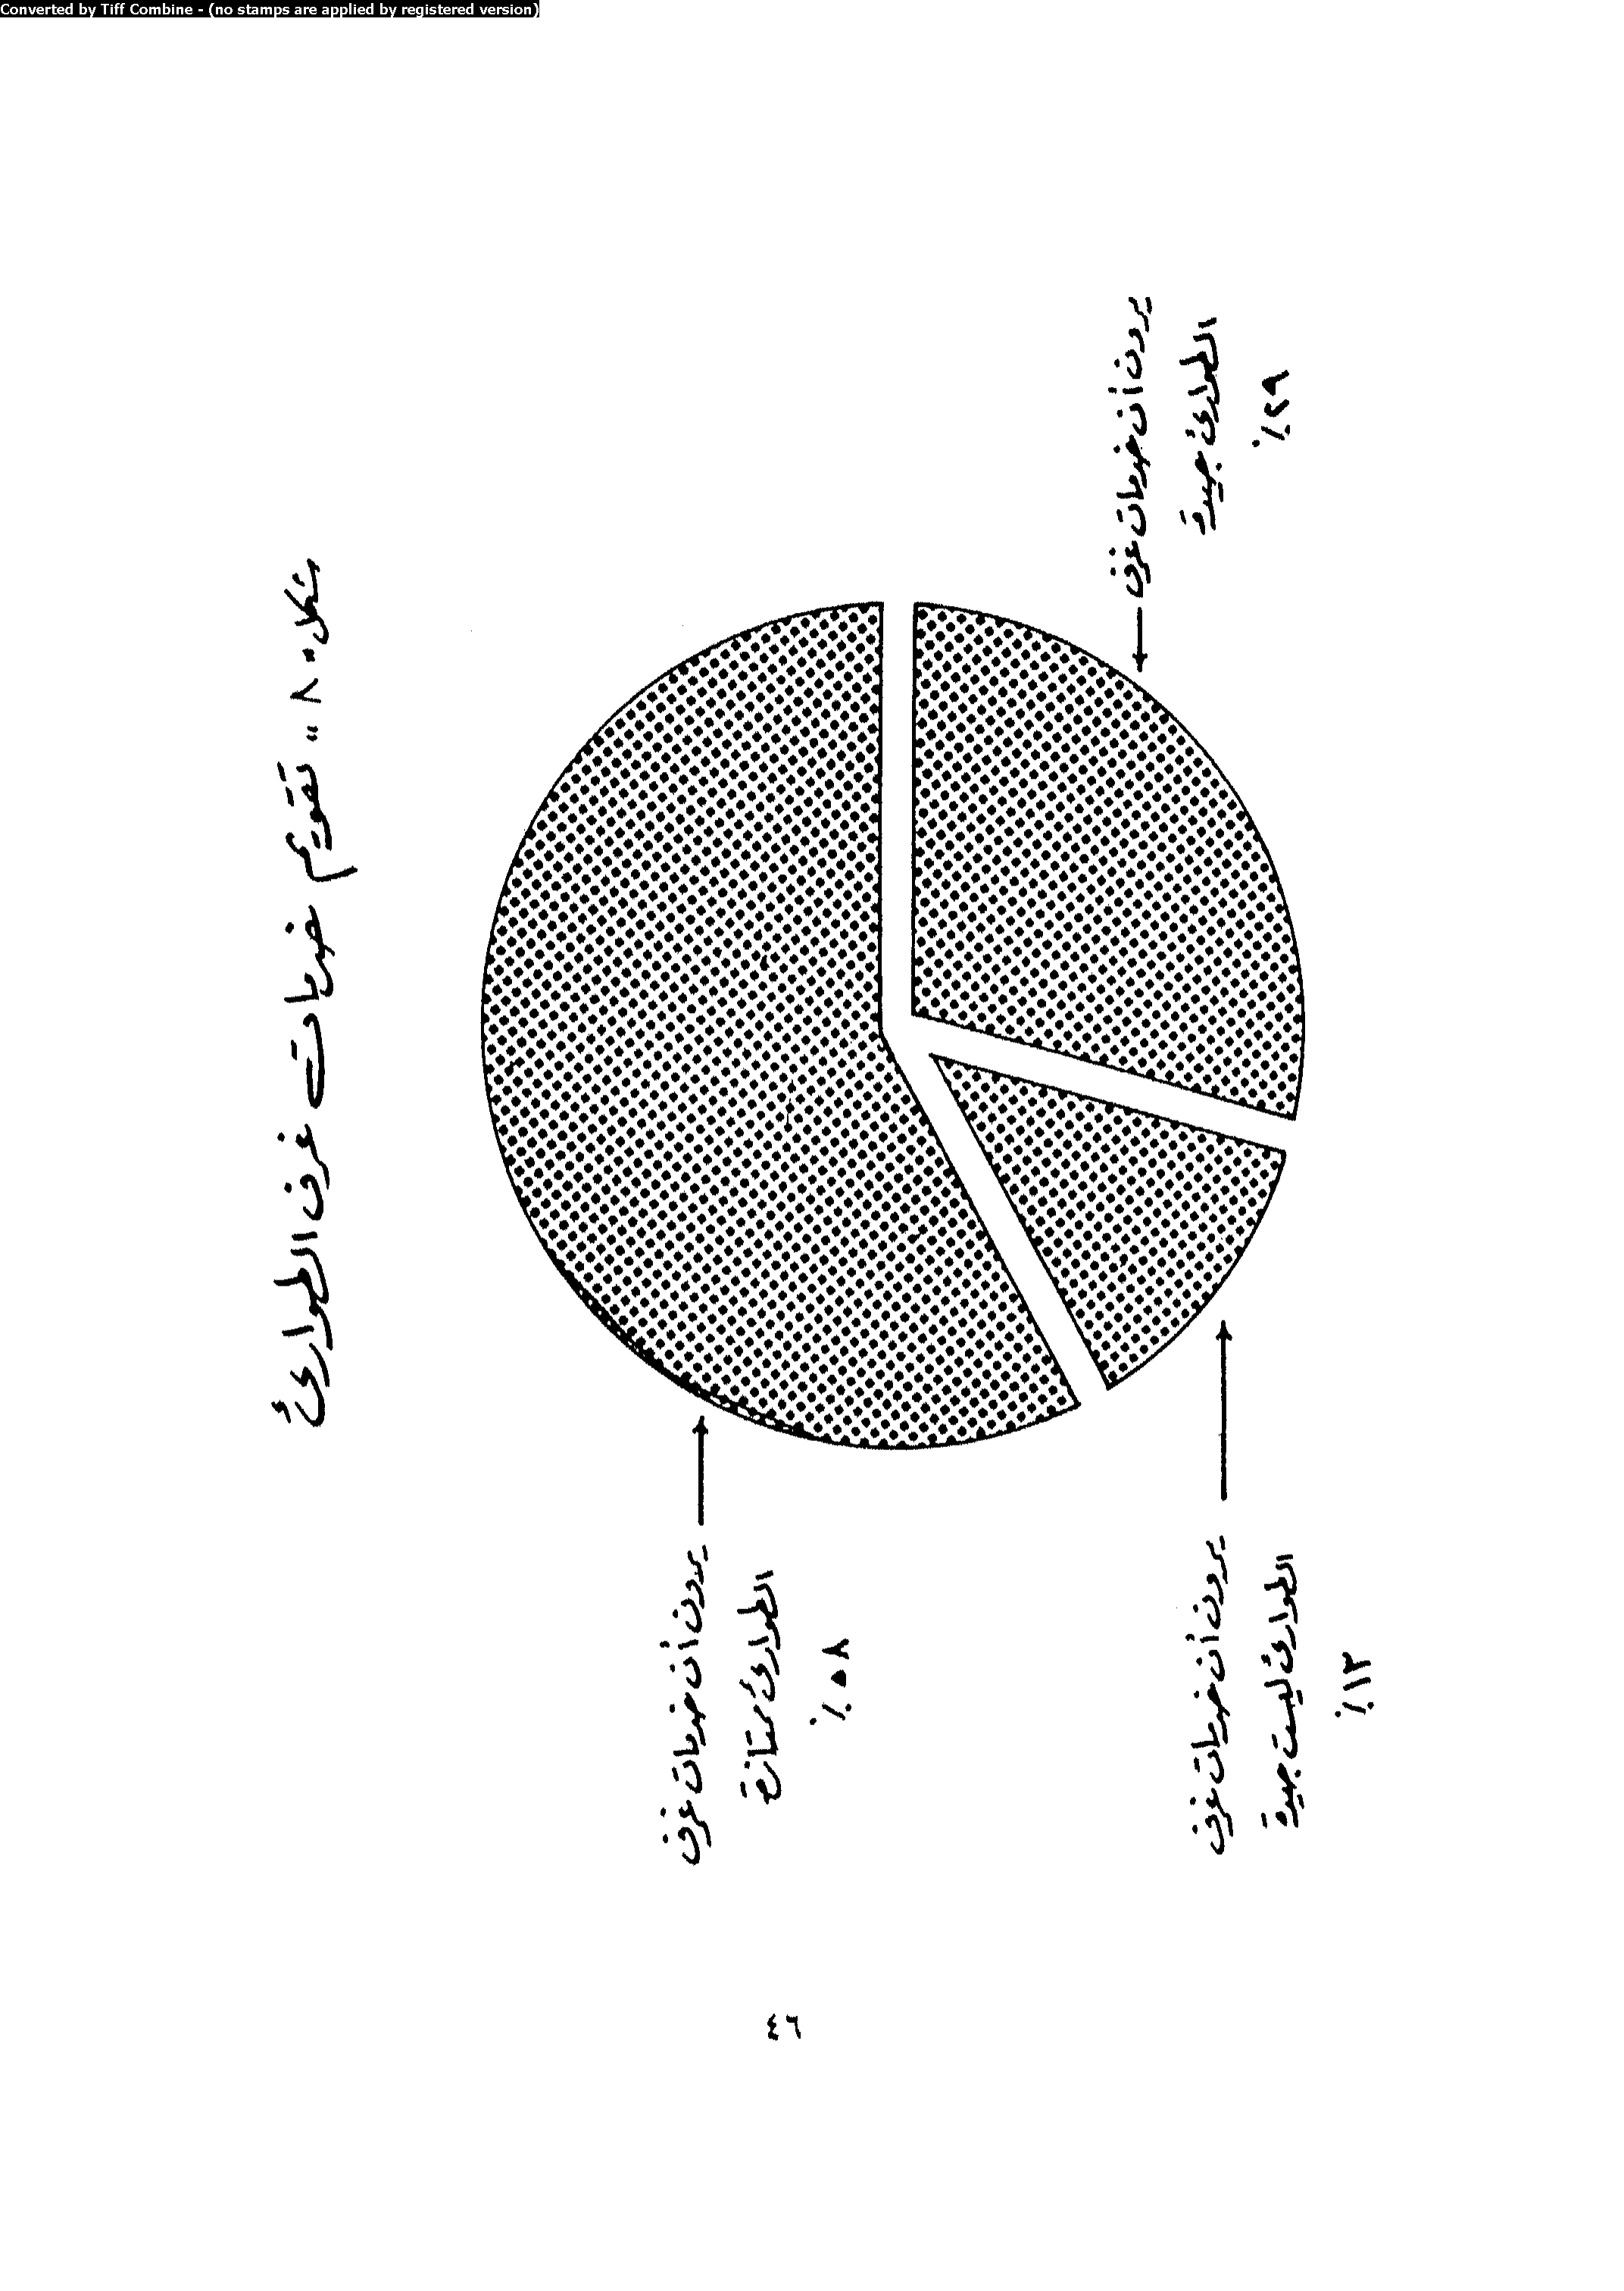 Converted by Tiff Combine - (no stamps are applied by registered version)
شكل " ٨ " تقويم خدمات غرف الطوارئ
يرون أن خدمات غرف
الطوارئ ممتازة
٥٨٪
يرون أن خدمات غرف
الطوارئ جيدة
٢٩٪
يرون أن خدمات غرف
الطوارئ ليست جيدة
١٣٪
٤٦